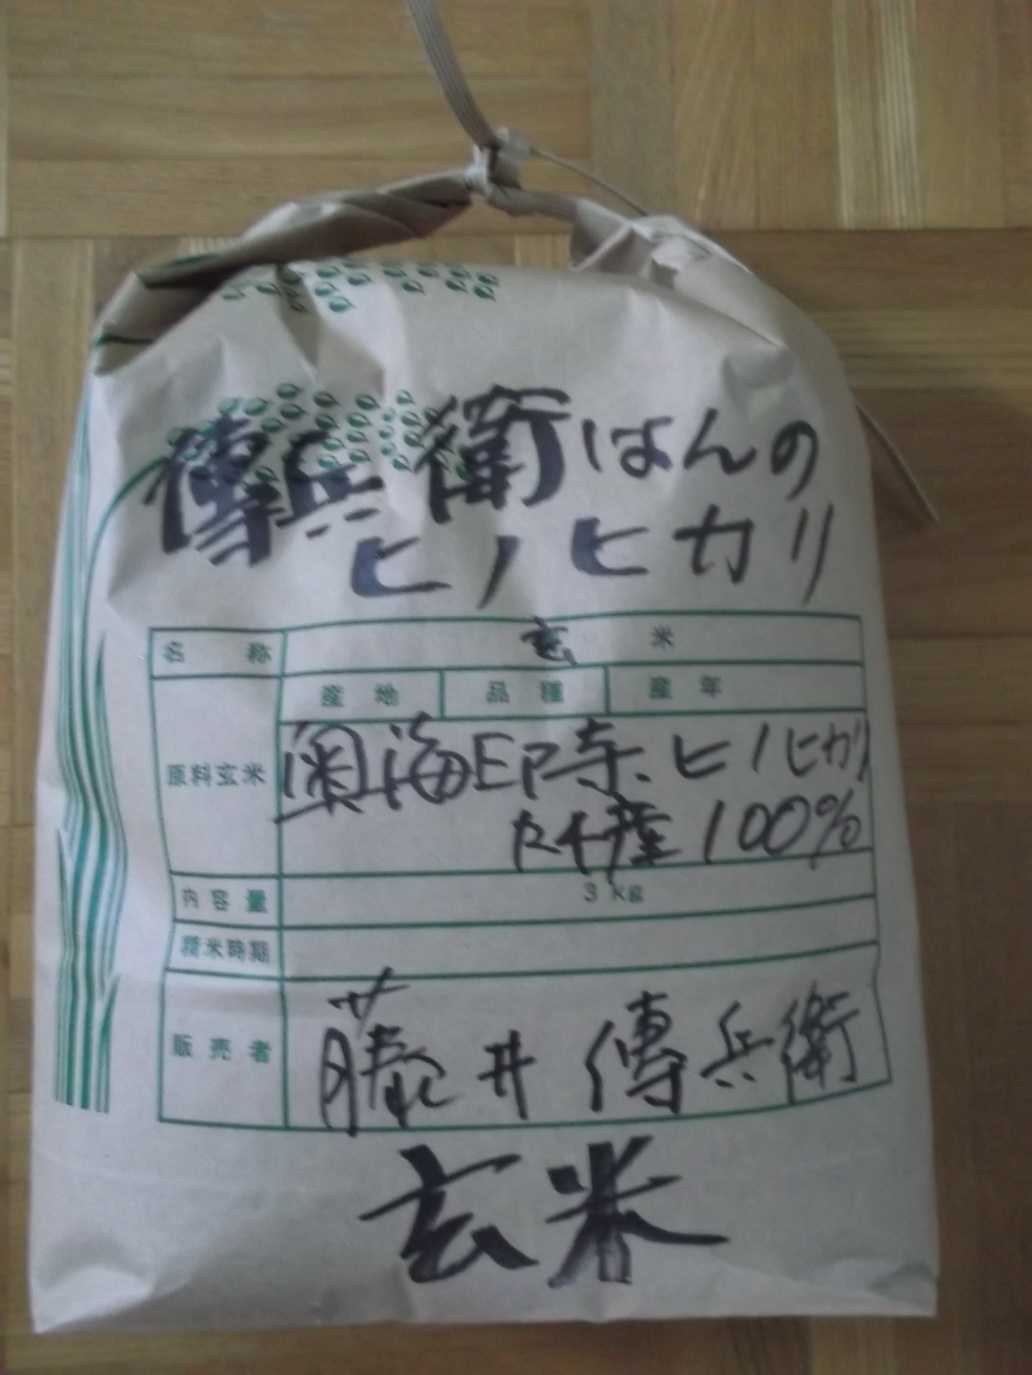 傳兵衛はんの
ヒノヒカリ
名称 玄米
産地 品種 産年
原料玄米 奥海印寺、ヒノヒカリ
100%
内容量 3kg
精米時期
販売者 藤井 傳兵衛
玄米